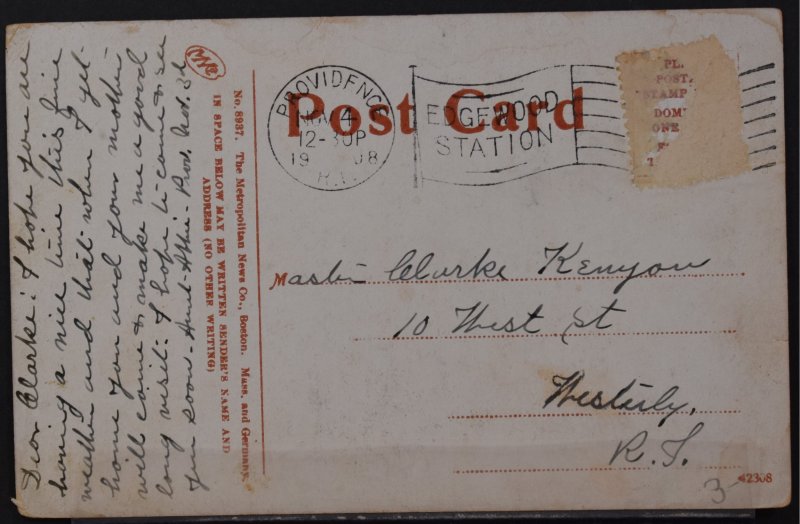 Post Card
PROVIDENCE
NOV 4
12-30P
1908
R.I.
EDGEWOOD
STATION
PL.
POST.
STAMP
DOM
ONE
Master Clarke Kenyon
10 West St
Westerly,
R.I.
42308
3
No. 8937. The Metropolitan News Co., Boston. Mass. and Germany.
IN SPACE BELOW MAY BE WRITTEN SENDER'S NAME AND
ADDRESS (NO OTHER WRITING)
Dear Clarke: I hope you are
having a nice time this fine
weather and that when I get
home you and your mother
will come & make me a good
long visit: I hope to come & see
you soon - Aunt Abbie - Prov. Nov. 3d